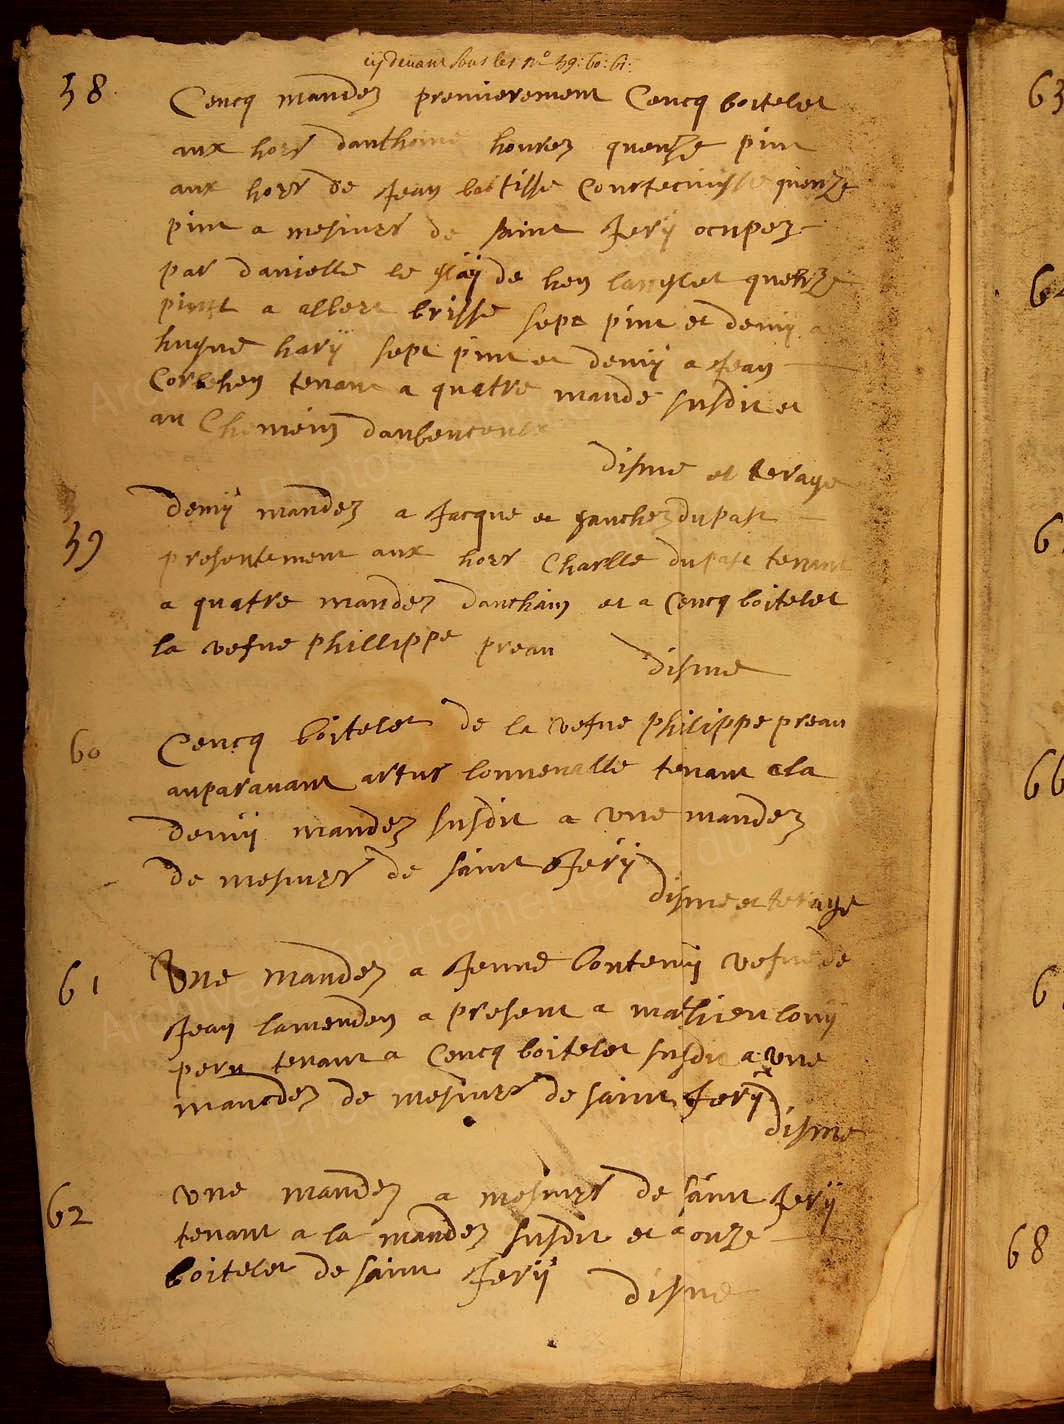 cÿ devant sous les n.o 59: 60: 61:
58 Cencq mandez premierement Cencq boitelet
aux hors danthoine hourez quenze pint
aux hors de Jean batisse Courtecuisse quenze
pint a mesiurs de saint Jerÿ ocupez
par danielle le de hen langlet quenze
pint a albert brisse sept pint et demÿ a
hugue harÿ sept pint et demÿ a Jean
Corbehen tenant a quatre mande susdit et
au Chemein
disme et terage
59 demÿ mandez a Jacque et dupast
presentement aux hors Charlle dupast tenant
a quatre mandez danchain et a Cencq boitelet
la vefue phillippe preau
disme
60 Cencq boitelet de la vefue philippe preau
auparavant artur tenant a la
demÿ mandez susdit a une mandez
de mesiurs de saint Jerÿ
disme et terage
61 Une mandez a Jenne vefue de
Jean a present a mathieu
tenant a Cencq boitelet susdit a une
mancdez de mesiurs de saint Jerÿ
disme
62 une mandez a mesiurs de saint Jerÿ
tenant a la mandez susdit et a onze
boitelet de saint Jerÿ
disme
63
66
68